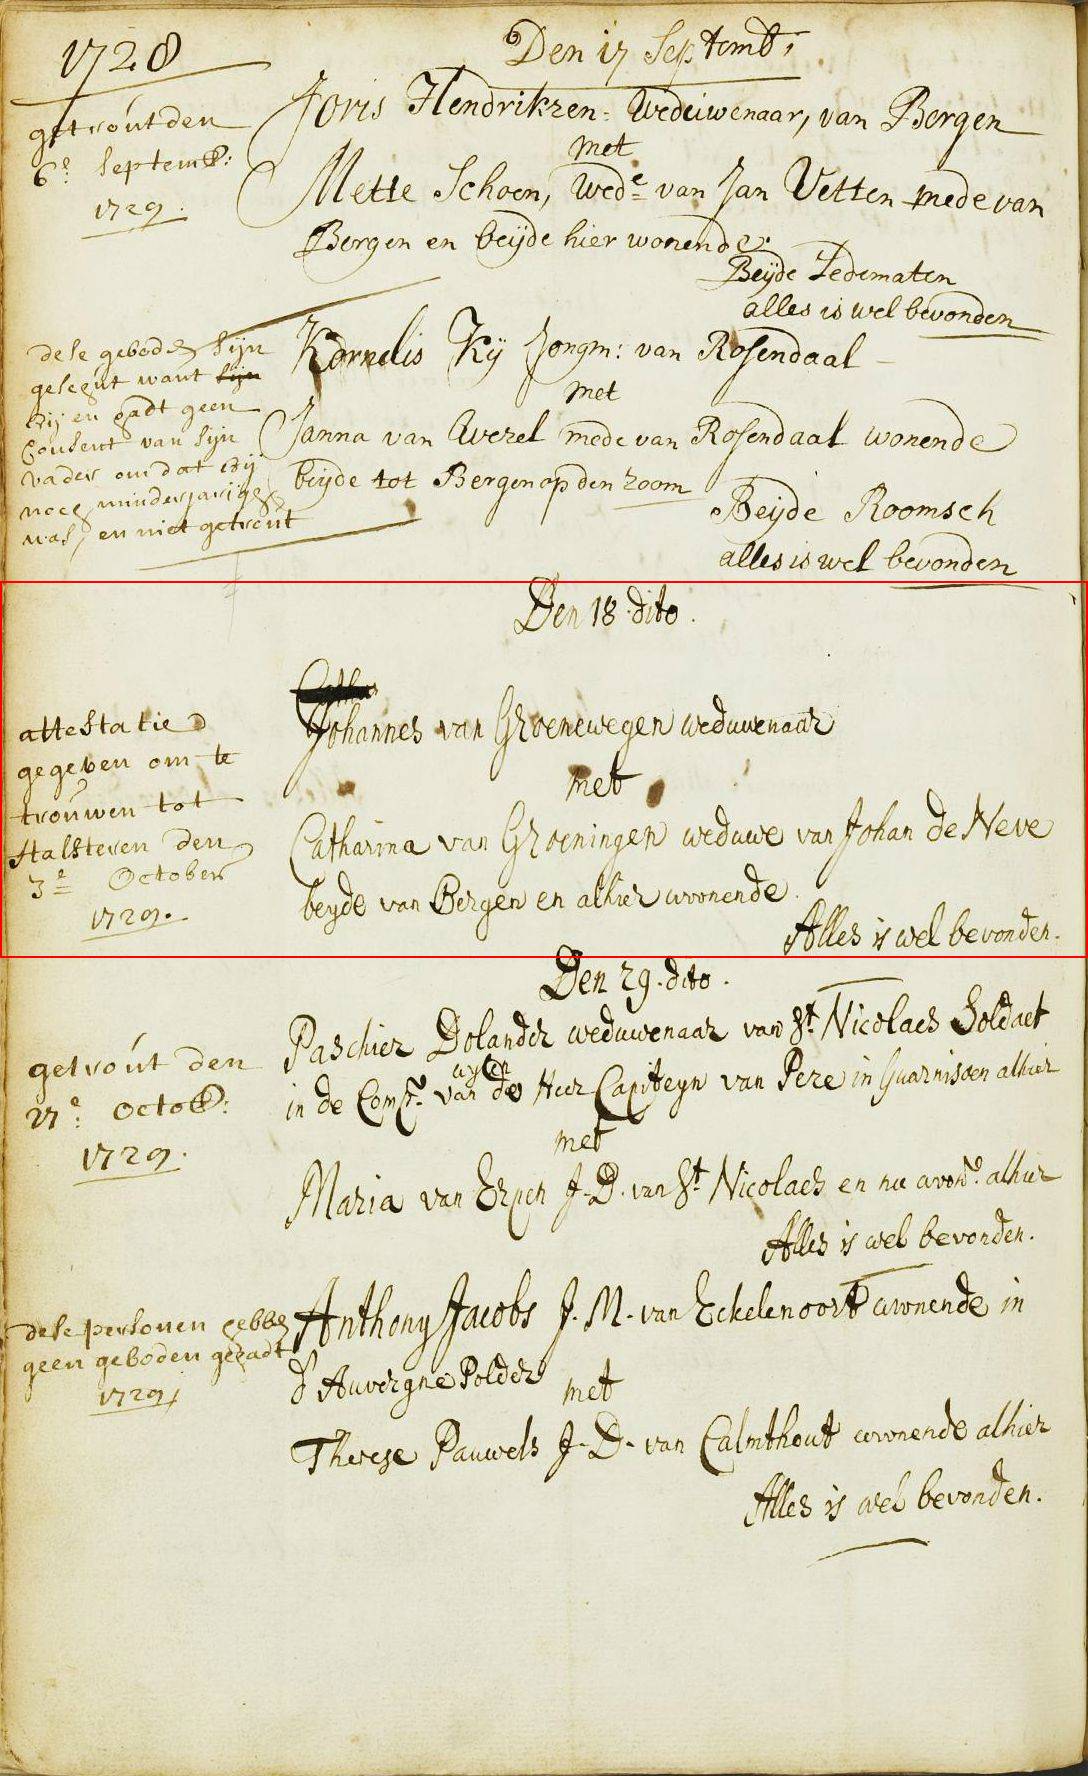 1728
Den 17 Septemb,
getrout den
6e Septemb:
1729.
Joris Hendrikzen: Weduwenaar, van Bergen
met
Mette Schoen, Wede van Jan Vetten mede van
Bergen en beijde hier wonende.
Beijde Ledematen
alles is wel bevonden
dese geboden sijn
geschut want sijn
hij en hadt geen
Consent van sijn
vader om dat hij
noch minderjarigh
was, en niet getrout
Kornelis Kij Jongm: van Rosendaal
met
Janna van Wezel mede van Rosendaal wonende
beijde tot Bergen op den zoom
Beijde Roomsch
alles is wel bevonden
Den 18 dito.
attestatie
gegeven om te
trouwen tot
Halsteren den
3e October
1729.
Johannes van Groenewegen weduwenaar
met
Catharina van Groeningen weduwe van Johan de Neve
beyde van Bergen en alhier woonende.
Alles is wel bevonden.
Den 29. dito.
getrout den
27e: Octob:
1729.
Paschier Dolander weduwenaar van St. Nicolaes Soldaet
in de Comp. van de Heer Capiteyn van Pere in Guarnisoen alhier
met
Maria van Erpen J. D. van St. Nicolaes en nu woon. alhier
Alles is wel bevonden.
dese personen hebbe
geen geboden gehadt
1729
Anthony Jacobs J. M. van Eckelenoort woonende in
d'Auvergne Polder
met
Therese Pauwels J. D. van Calmthout woonende alhier
Alles is wel bevonden.